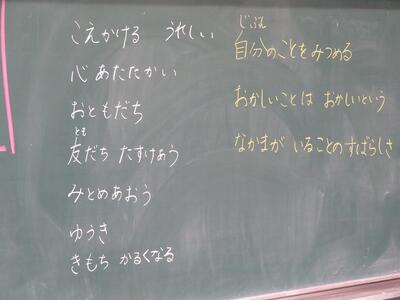 こえかける うれしい
心あたたかい
おともだち
とも
友だち たすけあう
みとめあおう
ゆうき
きもち かるくなる
じぶん
自分のことをみつめる
おかしいことは おかしいという
なかまが いることのすばらしさ